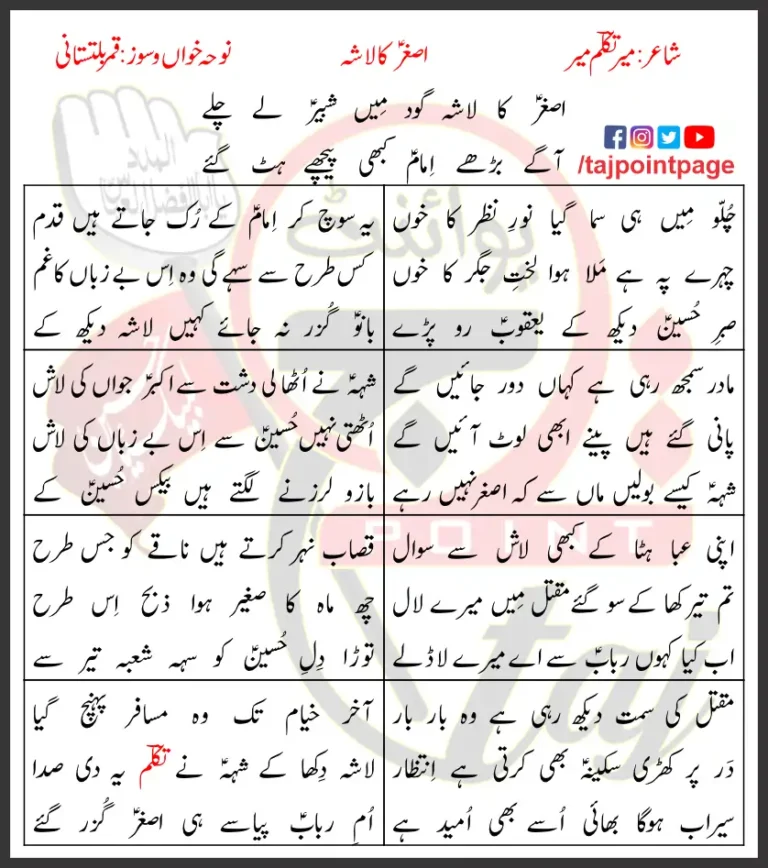 شاعر: میر تکلّم میر
اصغرؑ کا لاشہ
نوحہ خواں و سوز: قمر بلتستانی
اصغرؑ کا لاشہ گود مِیں شبیرؑ لے چلے
آگے بڑھے اِمامؑ کبھی پیچھے ہٹ گئے
/tajpointpage
چُلّو مِیں ہی سما گیا نورِ نظر کا خوں
چہرے پہ ہے مَلا ہوا لختِ جگر کا خوں
صبرِ حُسینؑ دیکھ کے یعقوبؑ رو پڑے
یہ سوچ کر اِمامؑ کے رُک جاتے ہیں قدم
کس طرح سے سہے گی وہ اِس بے زباں کا غم
بانوؑ گُزر نہ جائے کہیں لاشہ دیکھ کے
مادر سمجھ رہی ہے کہاں دور جائیں گے
پانی گئے ہیں پینے ابھی لوٹ آئیں گے
شہہؑ کیسے بولیں ماں سے کہ اصغر نہیں رہے
شہہؑ نے اُٹھا لی دشت سے اکبرؑ جواں کی لاش
اُٹھتی نہیں حُسینؑ سے اِس بے زباں کی لاش
بازو لرزنے لگتے ہیں بیکس حُسینؑ کے
اپنی عبا ہٹا کے کبھی لاش سے سوال
تم تیر کھا کے سو گئے مقتل مِیں میرے لال
اب کیا کہوں ربابؑ سے اے میرے لاڈلے
قصاب نہر کرتے ہیں ناقے کو جس طرح
چھ ماہ کا صغیر ہوا ذبح اِس طرح
توڑا دِلِ حُسینؑ کو سہہ شعبہ تیر سے
مقتل کی سمت دیکھ رہی ہے وہ بار بار
دَر پر کھڑی سکینہؑ بھی کرتی ہے اِنتظار
سیراب ہوگا بھائی اُسے بھی اُمید ہے
آخر خیام تک وہ مسافر پہنچ گیا
لاشہ دِکھا کے شہہؑ نے تکلّم یہ دی صدا
اُمِ ربابؑ پیاسے ہی اصغرؑ گُزر گئے
پوائنٹ
POINT
taj